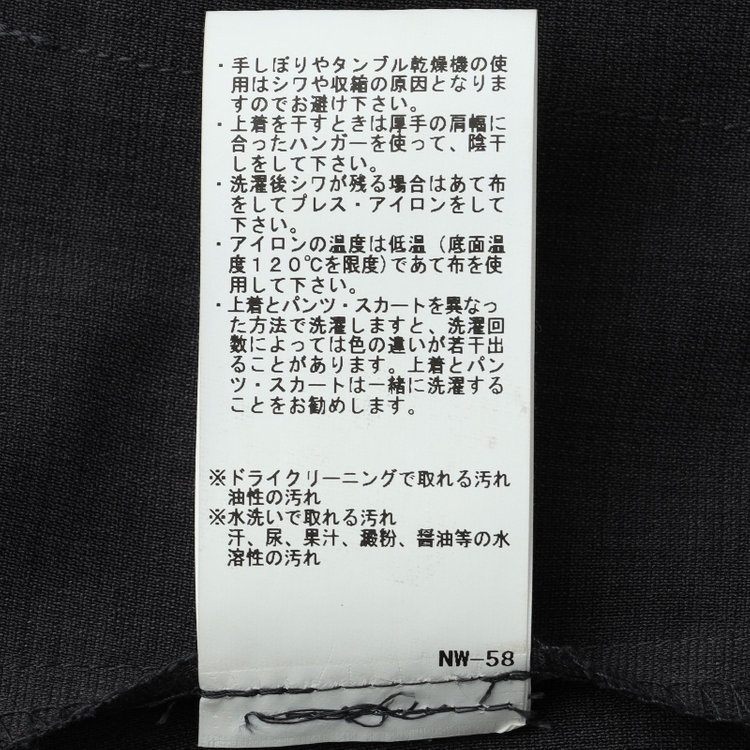 ・手しぼりやタンブル乾燥機の使
用はシワや収縮の原因となりま
すのでお避け下さい。
・上着を干すときは厚手の肩幅に
合ったハンガーを使って、陰干
しをして下さい。
・洗濯後シワが残る場合はあて布
をしてプレス・アイロンをして
下さい。
・アイロンの温度は低温（底面温
度１２０℃を限度）であて布を使
用して下さい。
・上着とパンツ・スカートを異なっ
た方法で洗濯しますと、洗濯回
数によっては色の違いが若干出
ることがあります。上着とパン
ツ・スカートは一緒に洗濯する
ことをお勧めします。
※ドライクリーニングで取れる汚れ
油性の汚れ
※水洗いで取れる汚れ
汗、尿、果汁、澱粉、醤油等の水
溶性の汚れ
NW-58